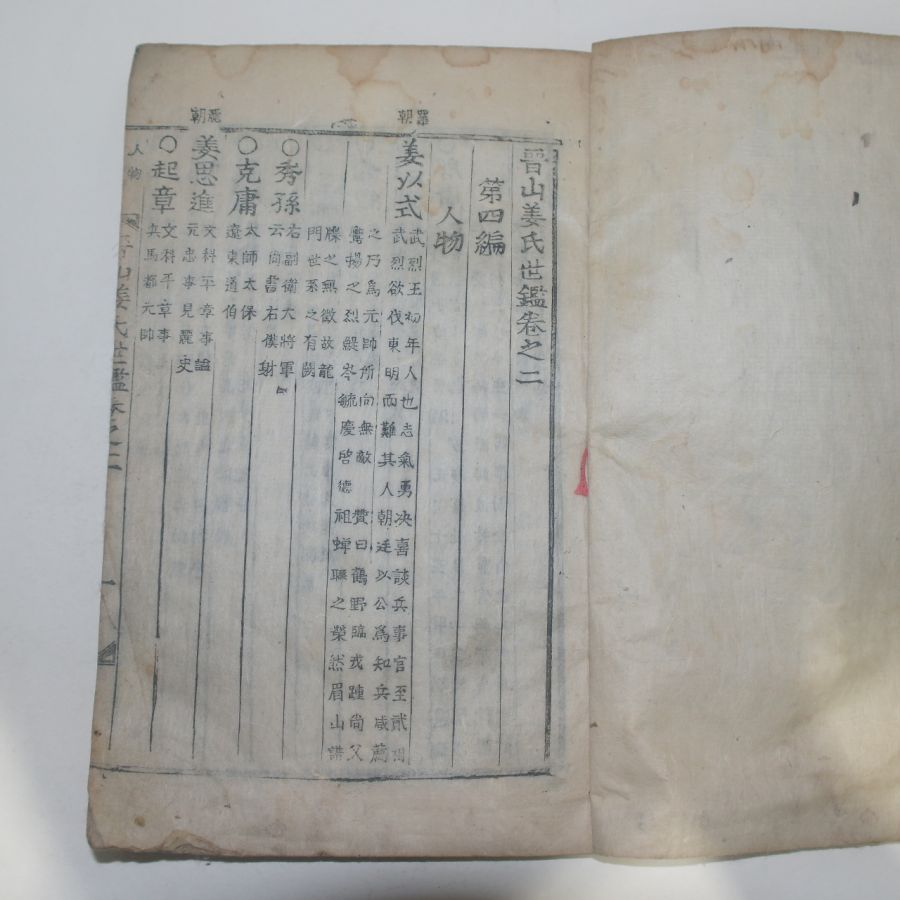 晉山姜氏世鑑卷之二
第四編
人物
羅朝
姜以式
武烈王初年人也志氣勇决喜談兵事官至貳相
武烈欲伐東明而難其人朝廷以公爲知兵咸薦
之乃爲元帥所向無敵 贊曰鶴野臨戎踵尙父
鷹揚之烈緹岑毓慶啓德祖蟬聯之榮然眉山譜
牒之無徵故龍
門世系之有闕
○秀孫
右副衛大將軍
云尙書右僕射
○克庸
太師太保
遼東道伯
麗朝
姜思進
文科平章事諡
元忠事見麗史
○起章
文科平章事
兵馬都元帥
人物
晉山姜氏世鑑卷之二